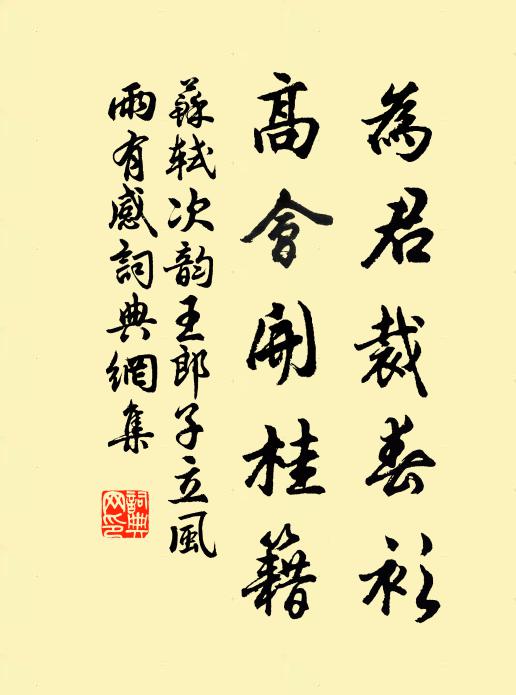 為君裁春衫
高會開桂籍
蘇軾次韵王郎子立風
雨有感詞典網集
詞典
网印